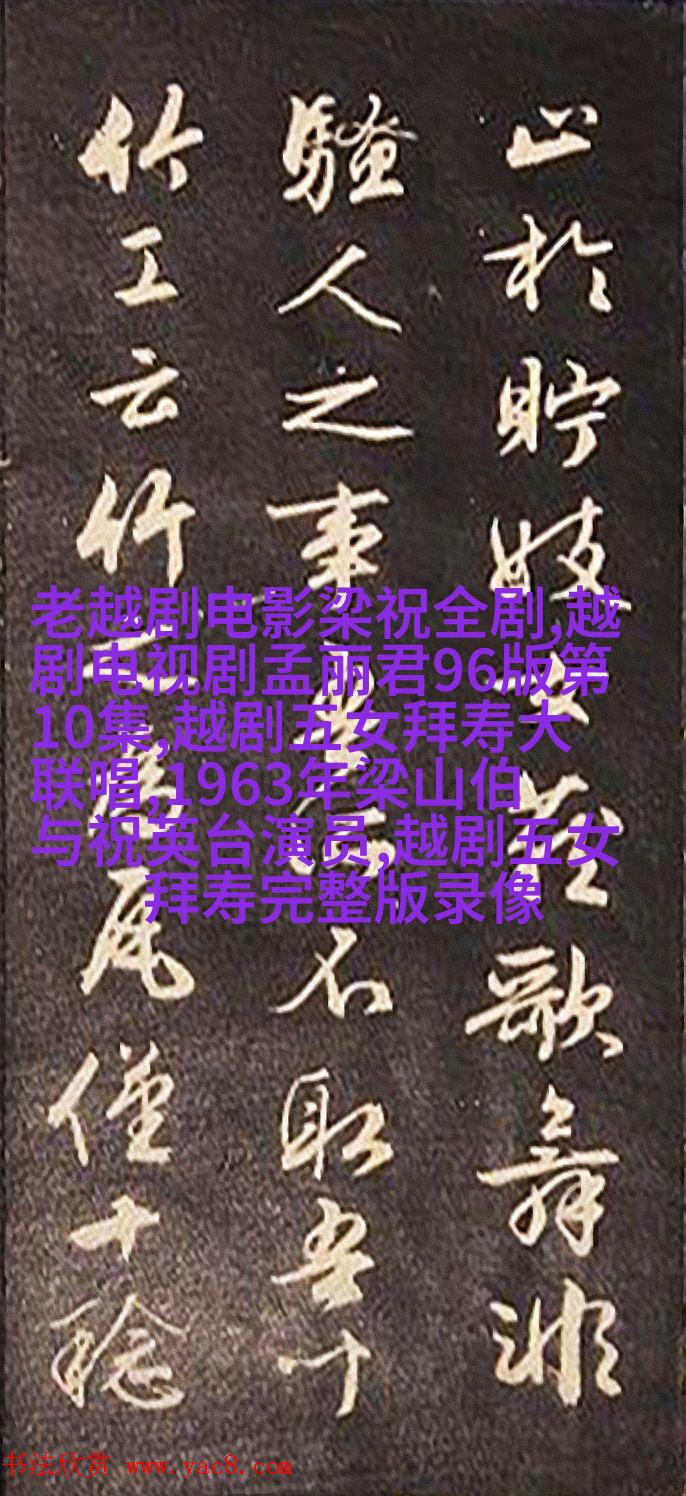 止於貯妓女藏歌舞非
騷人之事不取吾
竹工云竹瓦僅十稔
老越剧电影梁祝全剧,越
剧电视剧孟丽君96版第
10集,越剧五女拜寿大
联唱,1963年梁山伯
与祝英台演员,越剧五女
拜寿完整版录像
书法欣赏 www.yac8.com